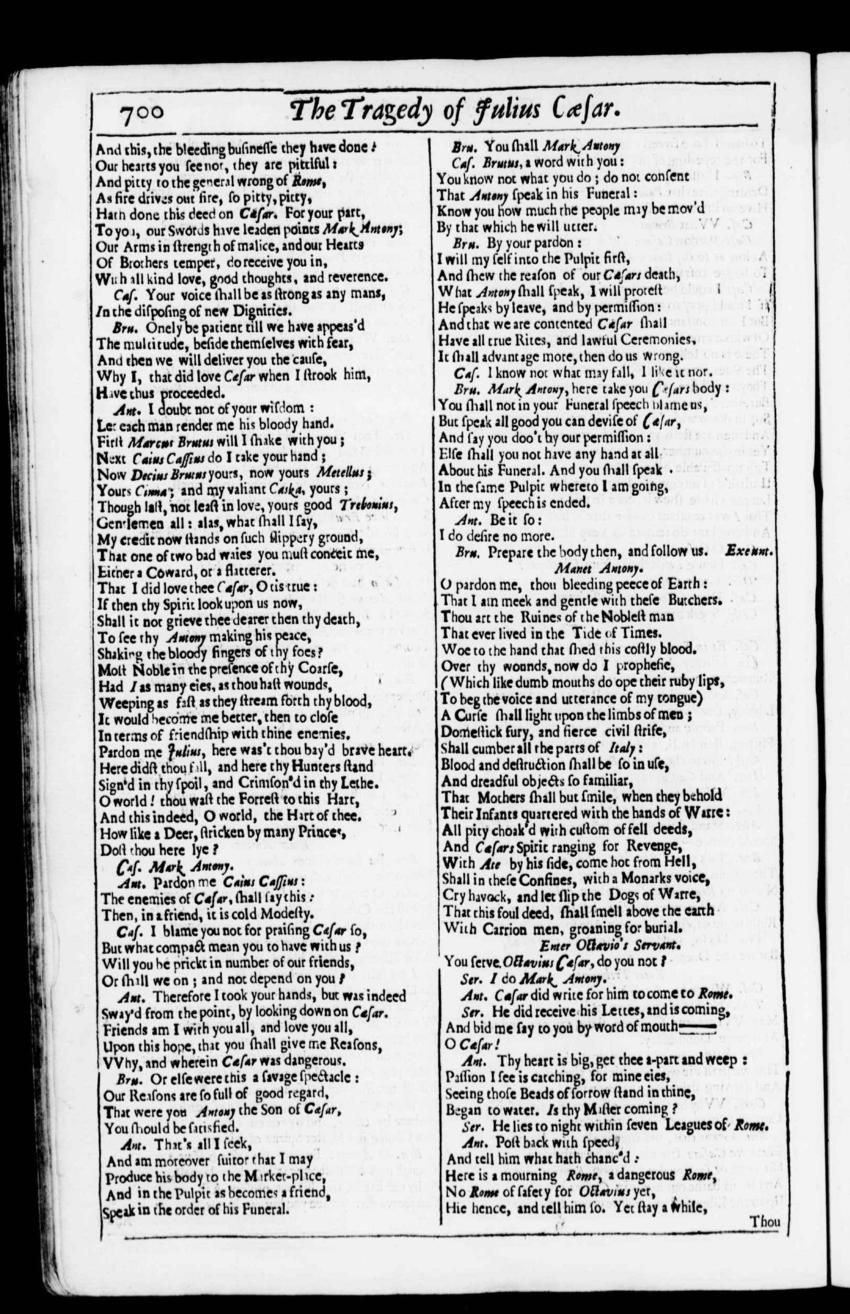 700 The Tragedy of Julius Cæſar.
And this, the bleeding buſineſſe they have done :
Our hearts you ſee not, they are pittiful :
And pitty to the general wrong of Rome,
As fire drives out fire, ſo pitty, pitty,
Hath done this deed on Cæſar. For your part,
To you, our Swords have leaden points Mark Antony;
Our Arms in ſtrength of malice, and our Hearts
Of Brothers temper, do receive you in,
With all kind love, good thoughts, and reverence.
Caſ. Your voice ſhall be as ſtrong as any mans,
In the diſpoſing of new Dignities.
Bru. Onely be patient till we have appeas'd
The multitude, beſide themſelves with fear,
And then we will deliver you the cauſe,
Why I, that did love Cæſar when I ſtrook him,
Have thus proceeded.
Ant. I doubt not of your wiſdom :
Let each man render me his bloody hand.
Firſt Marcus Brutus will I ſhake with you ;
Next Caius Caſſius do I take your hand ;
Now Decius Brutus yours, now yours Metellus ;
Yours Cinna ; and my valiant Caska, yours ;
Though laſt, not leaſt in love, yours good Trebonius,
Gentlemen all : alas, what ſhall I ſay,
My credit now ſtands on ſuch ſlippery ground,
That one of two bad waies you muſt conceit me,
Either a Coward, or a flatterer.
That I did love thee Cæſar, O tis true :
If then thy Spirit look upon us now,
Shall it not grieve thee dearer then thy death,
To ſee thy Antony making his peace,
Shaking the bloody fingers of thy foes?
Moſt Noble in the preſence of thy Coarſe,
Had I as many eies, as thou haſt wounds,
Weeping as faſt as they ſtream forth thy blood,
It would become me better, then to cloſe
In terms of friendſhip with thine enemies.
Pardon me Julius, here was't thou bay'd brave heart.
Here didſt thou fall, and here thy Hunters ſtand
Sign'd in thy ſpoil, and Crimſon'd in thy Lethe.
O world ! thou waſt the Forreſt to this Hart,
And this indeed, O world, the Hart of thee.
How like a Deer, ſtricken by many Princes,
Doſt thou here lye ?
Caſ. Mark Antony.
Ant. Pardon me Caius Caſſius :
The enemies of Cæſar, ſhall ſay this :
Then, in a friend, it is cold Modeſty.
Caſ. I blame you not for praiſing Cæſar ſo,
But what compact mean you to have with us ?
Will you be prickt in number of our friends,
Or ſhall we on ; and not depend on you ?
Ant. Therefore I took your hands, but was indeed
Sway'd from the point, by looking down on Cæſar.
Friends am I with you all, and love you all,
Upon this hope, that you ſhall give me Reaſons,
VVhy, and wherein Cæſar was dangerous.
Bru. Or elſe were this a ſavage ſpectacle :
Our Reaſons are ſo full of good regard,
That were you Antony the Son of Cæſar,
You ſhould be ſatisfied.
Ant. That's all I ſeek,
And am moreover ſuitor that I may
Produce his body to the Market-place,
And in the Pulpit as becomes a friend,
Speak in the order of his Funeral.
Bru. You ſhall Mark Antony
Caſ. Brutus, a word with you :
You know not what you do ; do not conſent
That Antony ſpeak in his Funeral :
Know you how much the people may be mov'd
By that which he will utter.
Bru. By your pardon :
I will my ſelf into the Pulpit firſt,
And ſhew the reaſon of our Cæſars death,
What Antony ſhall ſpeak, I will proteſt
He ſpeaks by leave, and by permiſſion :
And that we are contented Cæſar ſhall
Have all true Rites, and lawful Ceremonies,
It ſhall advantage more, then do us wrong.
Caſ. I know not what may fall, I like it not.
Bru. Mark Antony, here take you Cæſars body :
You ſhall not in your Funeral ſpeech blame us,
But ſpeak all good you can deviſe of Cæſar,
And ſay you doo't by our permiſſion :
Elſe ſhall you not have any hand at all
About his Funeral. And you ſhall ſpeak
In the ſame Pulpit whereto I am going,
After my ſpeech is ended.
Ant. Be it ſo :
I do deſire no more.
Bru. Prepare the body then, and follow us. Exeunt.
Manet Antony.
O pardon me, thou bleeding peece of Earth :
That I am meek and gentle with theſe Butchers.
Thou art the Ruines of the Nobleſt man
That ever lived in the Tide of Times.
Woe to the hand that ſhed this coſtly blood.
Over thy wounds, now do I propheſie,
(Which like dumb mouths do ope their ruby lips,
To beg the voice and utterance of my tongue)
A Curſe ſhall light upon the limbs of men ;
Domeſtick fury, and fierce civil ſtrife,
Shall cumber all the parts of Italy :
Blood and deſtruction ſhall be ſo in uſe,
And dreadful objects ſo familiar,
That Mothers ſhall but ſmile, when they behold
Their Infants quartered with the hands of Warre :
All pity choak'd with cuſtom of fell deeds,
And Cæſars Spirit ranging for Revenge,
With Ate by his ſide, come hot from Hell,
Shall in theſe Confines, with a Monarks voice,
Cry havock, and let ſlip the Dogs of Warre,
That this foul deed, ſhall ſmell above the earth
With Carrion men, groaning for burial.
Enter Octavio's Servant.
You ſerve Octavius Cæſar, do you not ?
Ser. I do Mark Antony.
Ant. Cæſar did write for him to come to Rome.
Ser. He did receive his Lettes, and is coming,
And bid me ſay to you by word of mouth——
O Cæſar !
Ant. Thy heart is big, get thee a-part and weep :
Paſſion I ſee is catching, for mine eies,
Seeing thoſe Beads of ſorrow ſtand in thine,
Began to water. Is thy Maſter coming ?
Ser. He lies to night within ſeven Leagues of Rome.
Ant. Poſt back with ſpeed,
And tell him what hath chanc'd :
Here is a mourning Rome, a dangerous Rome,
No Rome of ſafety for Octavius yet,
Hie hence, and tell him ſo. Yet ſtay a while,
Thou